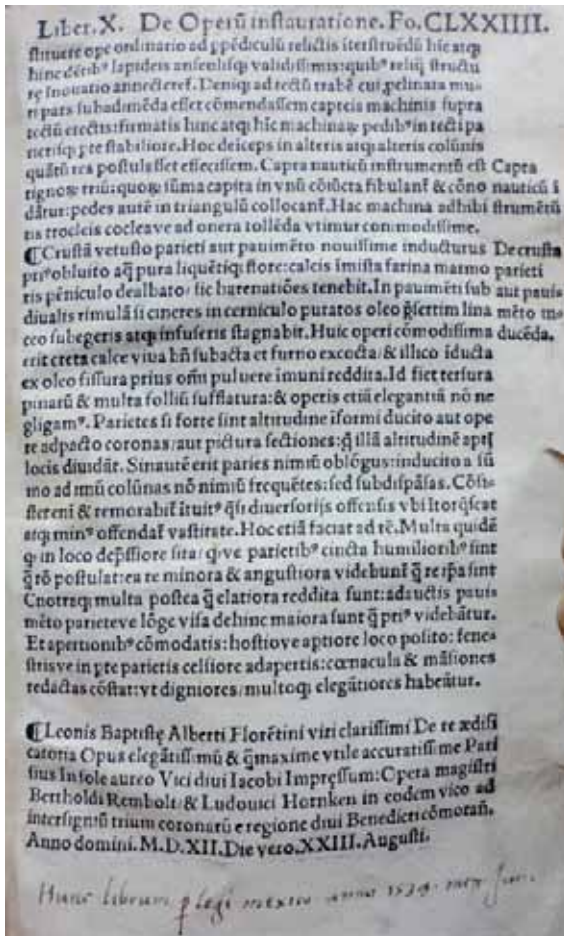 Liber.X. De Operũ instauratione. Fo. CLXXIIII.
struere ope ordinario ad ppēdiculũ relictis iterstruēdũ hĩc atqꝫ
hinc dētibꝰ lapideis ansculisqꝫ validissimis: quibꝰ reliq̃ structu
re ĩnouatio annecteret̃. Deniqꝫ ad tectũ trabē cui pelinata mu-
ri pars subadimēda esset cōmendassem capreis machinis supra
tectũ erectis: firmatis hinc atqꝫ hĩc machinaꝝ pedibꝰ in tecti pa
rietisqꝫ pte stabiliore. Hoc deiceps in alteris atqꝫ alteris colũnis
quãtũ res postulasset effecissem. Capra nauticũ instrumentũ est
Capra
tignoꝝ triũ: quoꝝ sũma capita in vnũ cōiũcta fibulant̃ & cōno
nauticũ ĩ
dãtur: pedes autē in triangulũ collocant̃. Hac machina adhibi
strumētũ
tis trocleis cocleave ad onera tollēda vtimur commodissime.
¶Crustã vetusto parieti aut pauimēto nouissime inducturus
De crusta
priꝰ obluito aq̃ pura liquētiqꝫ flore: calcis ĩmista farina marmo
parieti
ris pēniculo dealbato/ sic harenatiões tenebit. In pauimēti sub
aut paui-
diualis rimulã si cineres in cerniculo putatos oleo p̃sertim lina
mēto in-
ceo subegeris atqꝫ infuseris stagnabit. Huic operi cōmodissima
ducēda.
erit creta calce viua bñ subacta et furno excocta/ & illico iducta
ex oleo fissura prius om̃i puluere imuni reddita. Id fiet tersura
pinarũ & multa folliũ sufflatura: & operis etiã elegantiã nō ne
gligamꝰ. Parietes si forte sint altitudine iformi ducito aut ope
re adpacto coronas/ aut pictura sectiones: q̃ illã altitudinē apt̃
locis diuidãt. Sinautē erit paries nimiũ oblōgus: inducito a sũ
mo ad imũ colũnas nō nimiũ freqũetes: sed subdispãsas.
atqꝫ minꝰ offendat̃ vastitate. Hoc etiã faciat ad rē. Multa quidē
q̃ in loco dep̃ssiore sita: q̃ ve parietibꝰ cincta humilioribꝰ sint
q̃ rō postulat: ea re minora & angustiora videbunt̃ q̃ re ip̃a sint
Cnotraqꝫ multa postea q̃ elatiora reddita sunt: adauctis paui
mēto parieteve lōge visa dehinc maiora sunt q̃ priꝰ videbãtur.
Et apertionibꝰ cōmodatis: hostiove aptiore loco posito: fene
strisve in pte parietis celsiore adapertis: cœnacula & mãsiones
redactas cōstat: vt digniores/ multoqꝫ elegãtiores habeãtur.
¶Leonis Baptistę Alberti Florētini viri clarissimi De re ædifi
catoria Opus elegãtissimũ & q̃maxime vtile accuratissime Pari
sius In sole aureo Vici diui Iacobi Impręssum: Opera magistri
Bertholdi Rembolt/ & Ludouici Hornken in eodem vico ad
intersigniũ trium coronarũ e regione diui Benedicti cōmotañ.
Anno domini. M.D.XII. Die vero. XXIII. Augusti.
Hunc librum plegi mexico anno